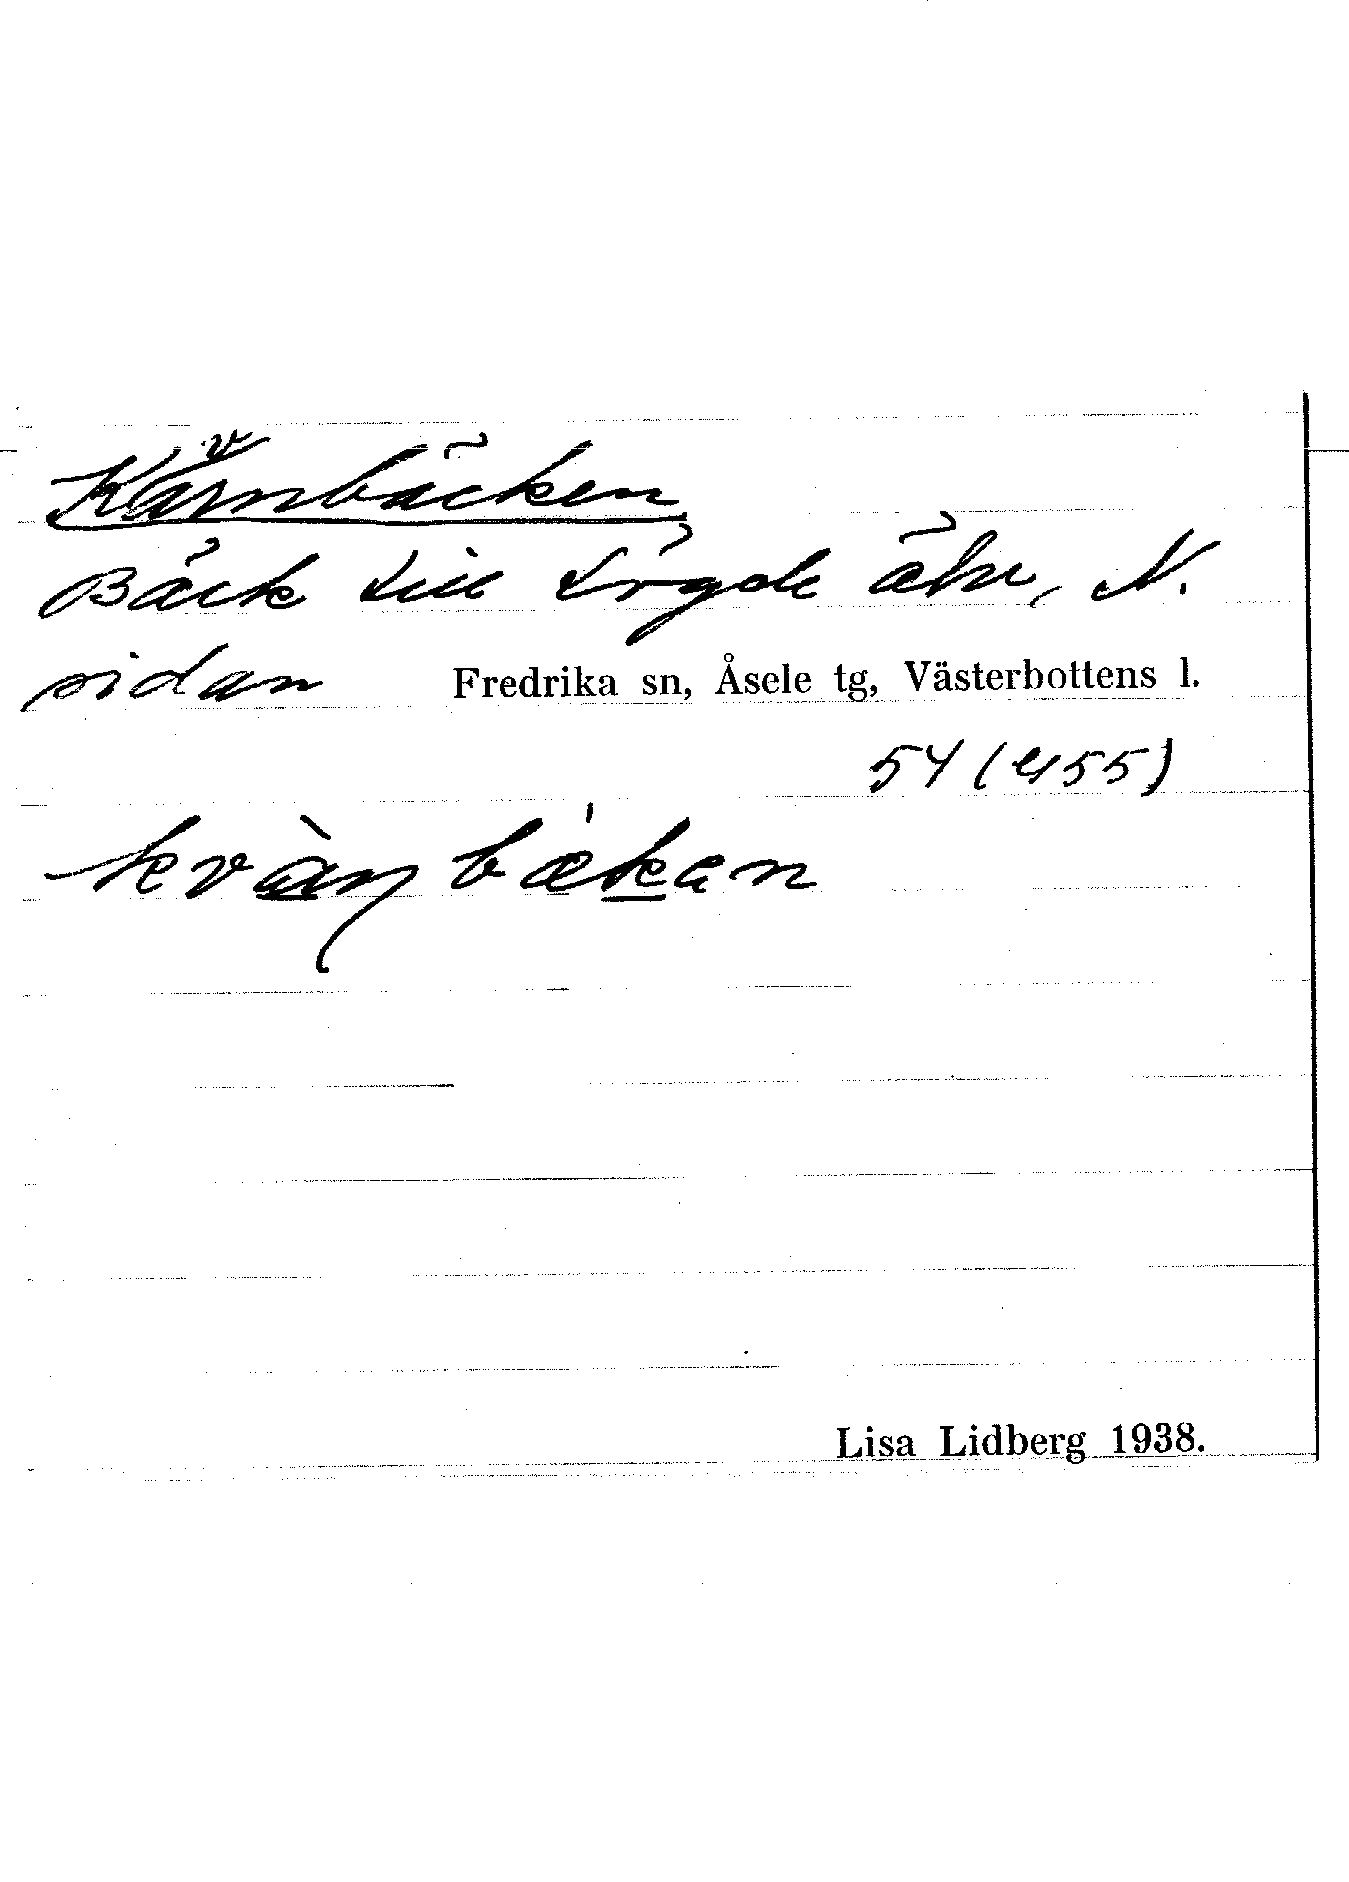 Kvärnbäcken
Bäck till Lögde älv, N.
sidan Fredrika sn, Åsele tg, Västerbottens l.
54 (455)
Lisa Lidberg 1938.